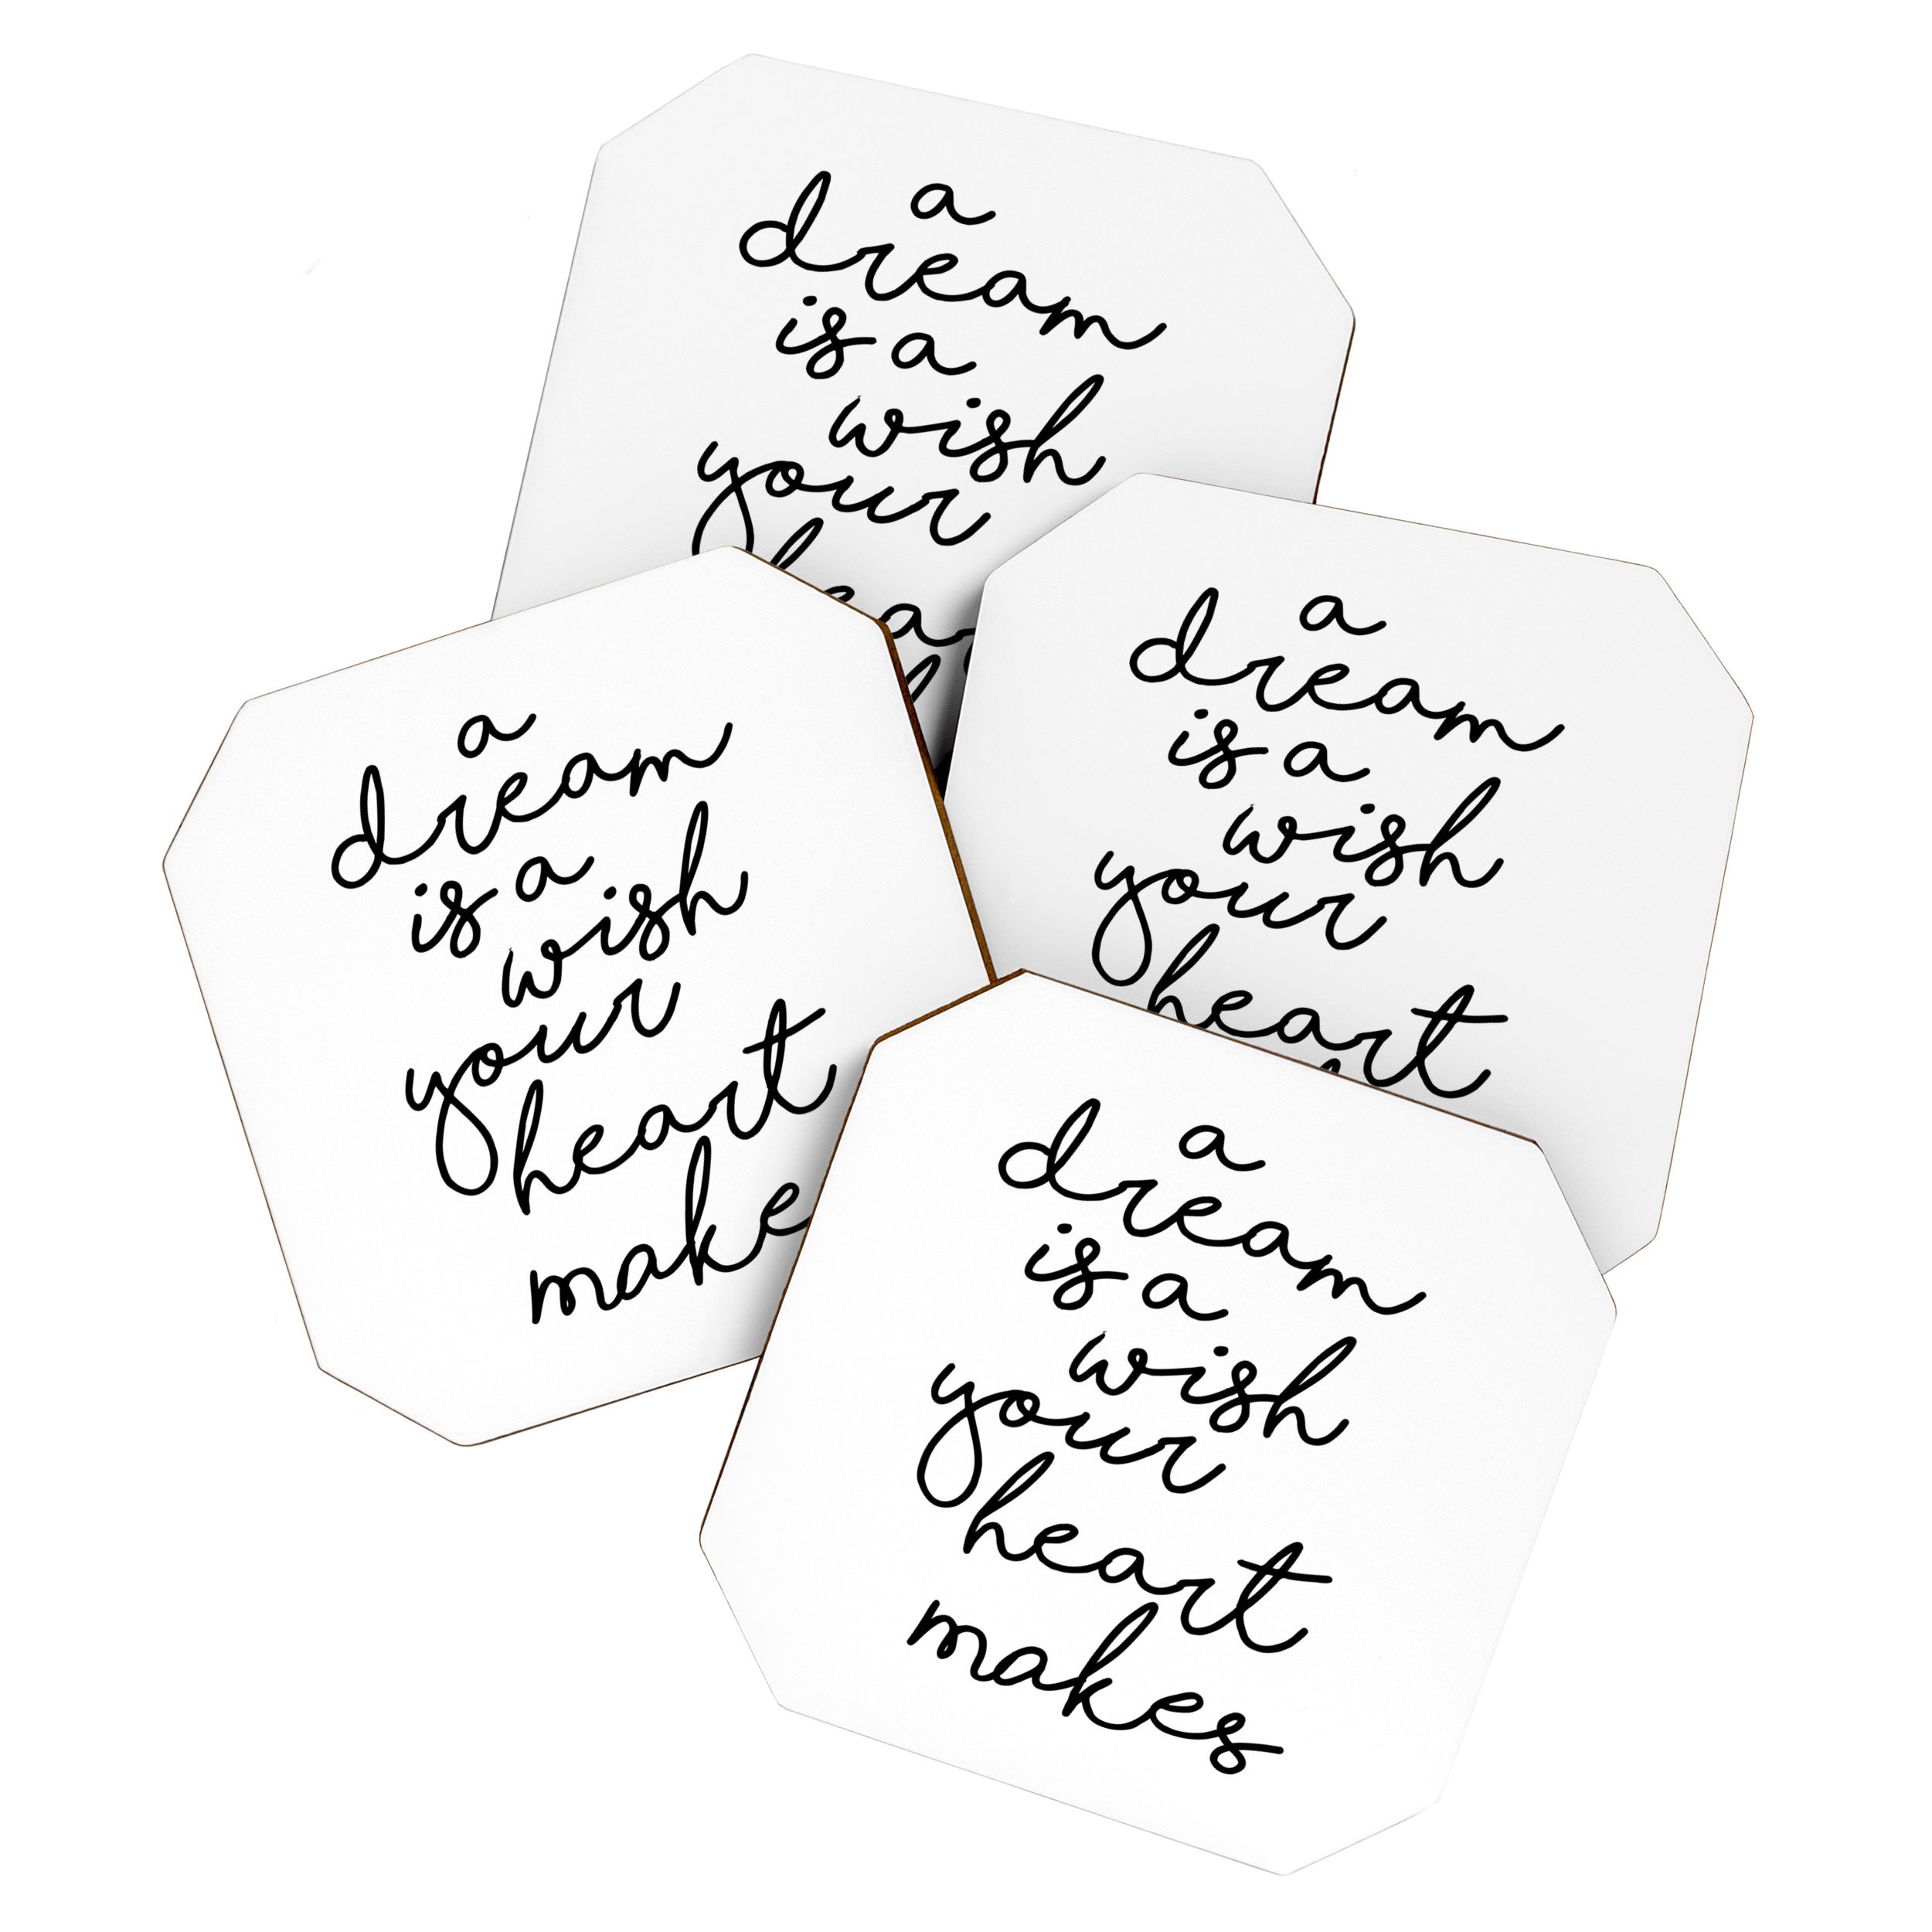 a
dream
is a
wish
your
hea
a
dream
is a
wish
your
heart
a
dream
is a
wish
your
heart
make
a
dream
is a
wish
your
heart
makes